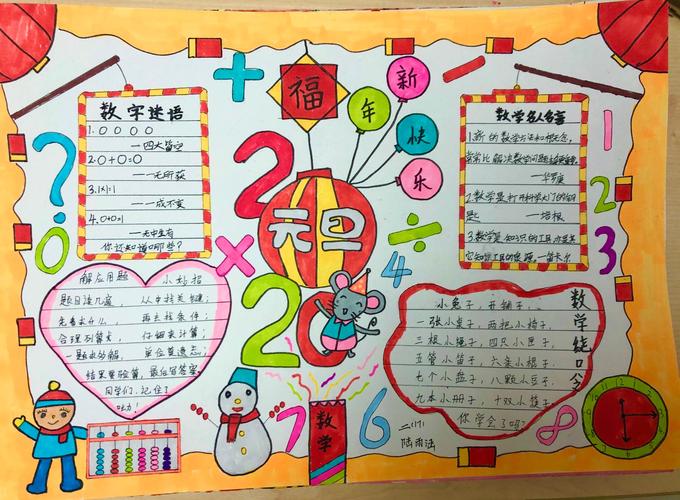 福
新
年
快
乐
2
元旦
20
+
×
÷
?
0
1
2
3
4
7
6
8
数学
二(1)
数字迷语
1.0 0 0 0
—四大皆空
2.0+0=0
—一无所获
3.1×1=1
—一成不变
4.0+0=1
—无中生有
你还知道哪些?
数学名人名言
1.新的数学方法和概念,
常常比解决数学问题本身更重要。
—华罗庚
2.数学是打开科学大门的钥
匙。 —培根
3.数学是知识的工具,亦是其
它知识工具的泉源。—笛卡尔
解应用题 小妙招
题目读几遍, 从中找关键;
先看求什么, 再去找条件;
合理列算式, 仔细来计算;
一题求多解, 单位莫遗忘;
结果要验算, 最后写答案。
同学们,记住了
吗?
数学绕口令
小兔子,开铺子,
一张小桌子,两把小椅子,
三根小绳子,四只小匣子,
五管小笛子,六条小棍子,
七个小盘子,八颗小豆子,
九本小册子,十双小筷子,
你学会了吗?